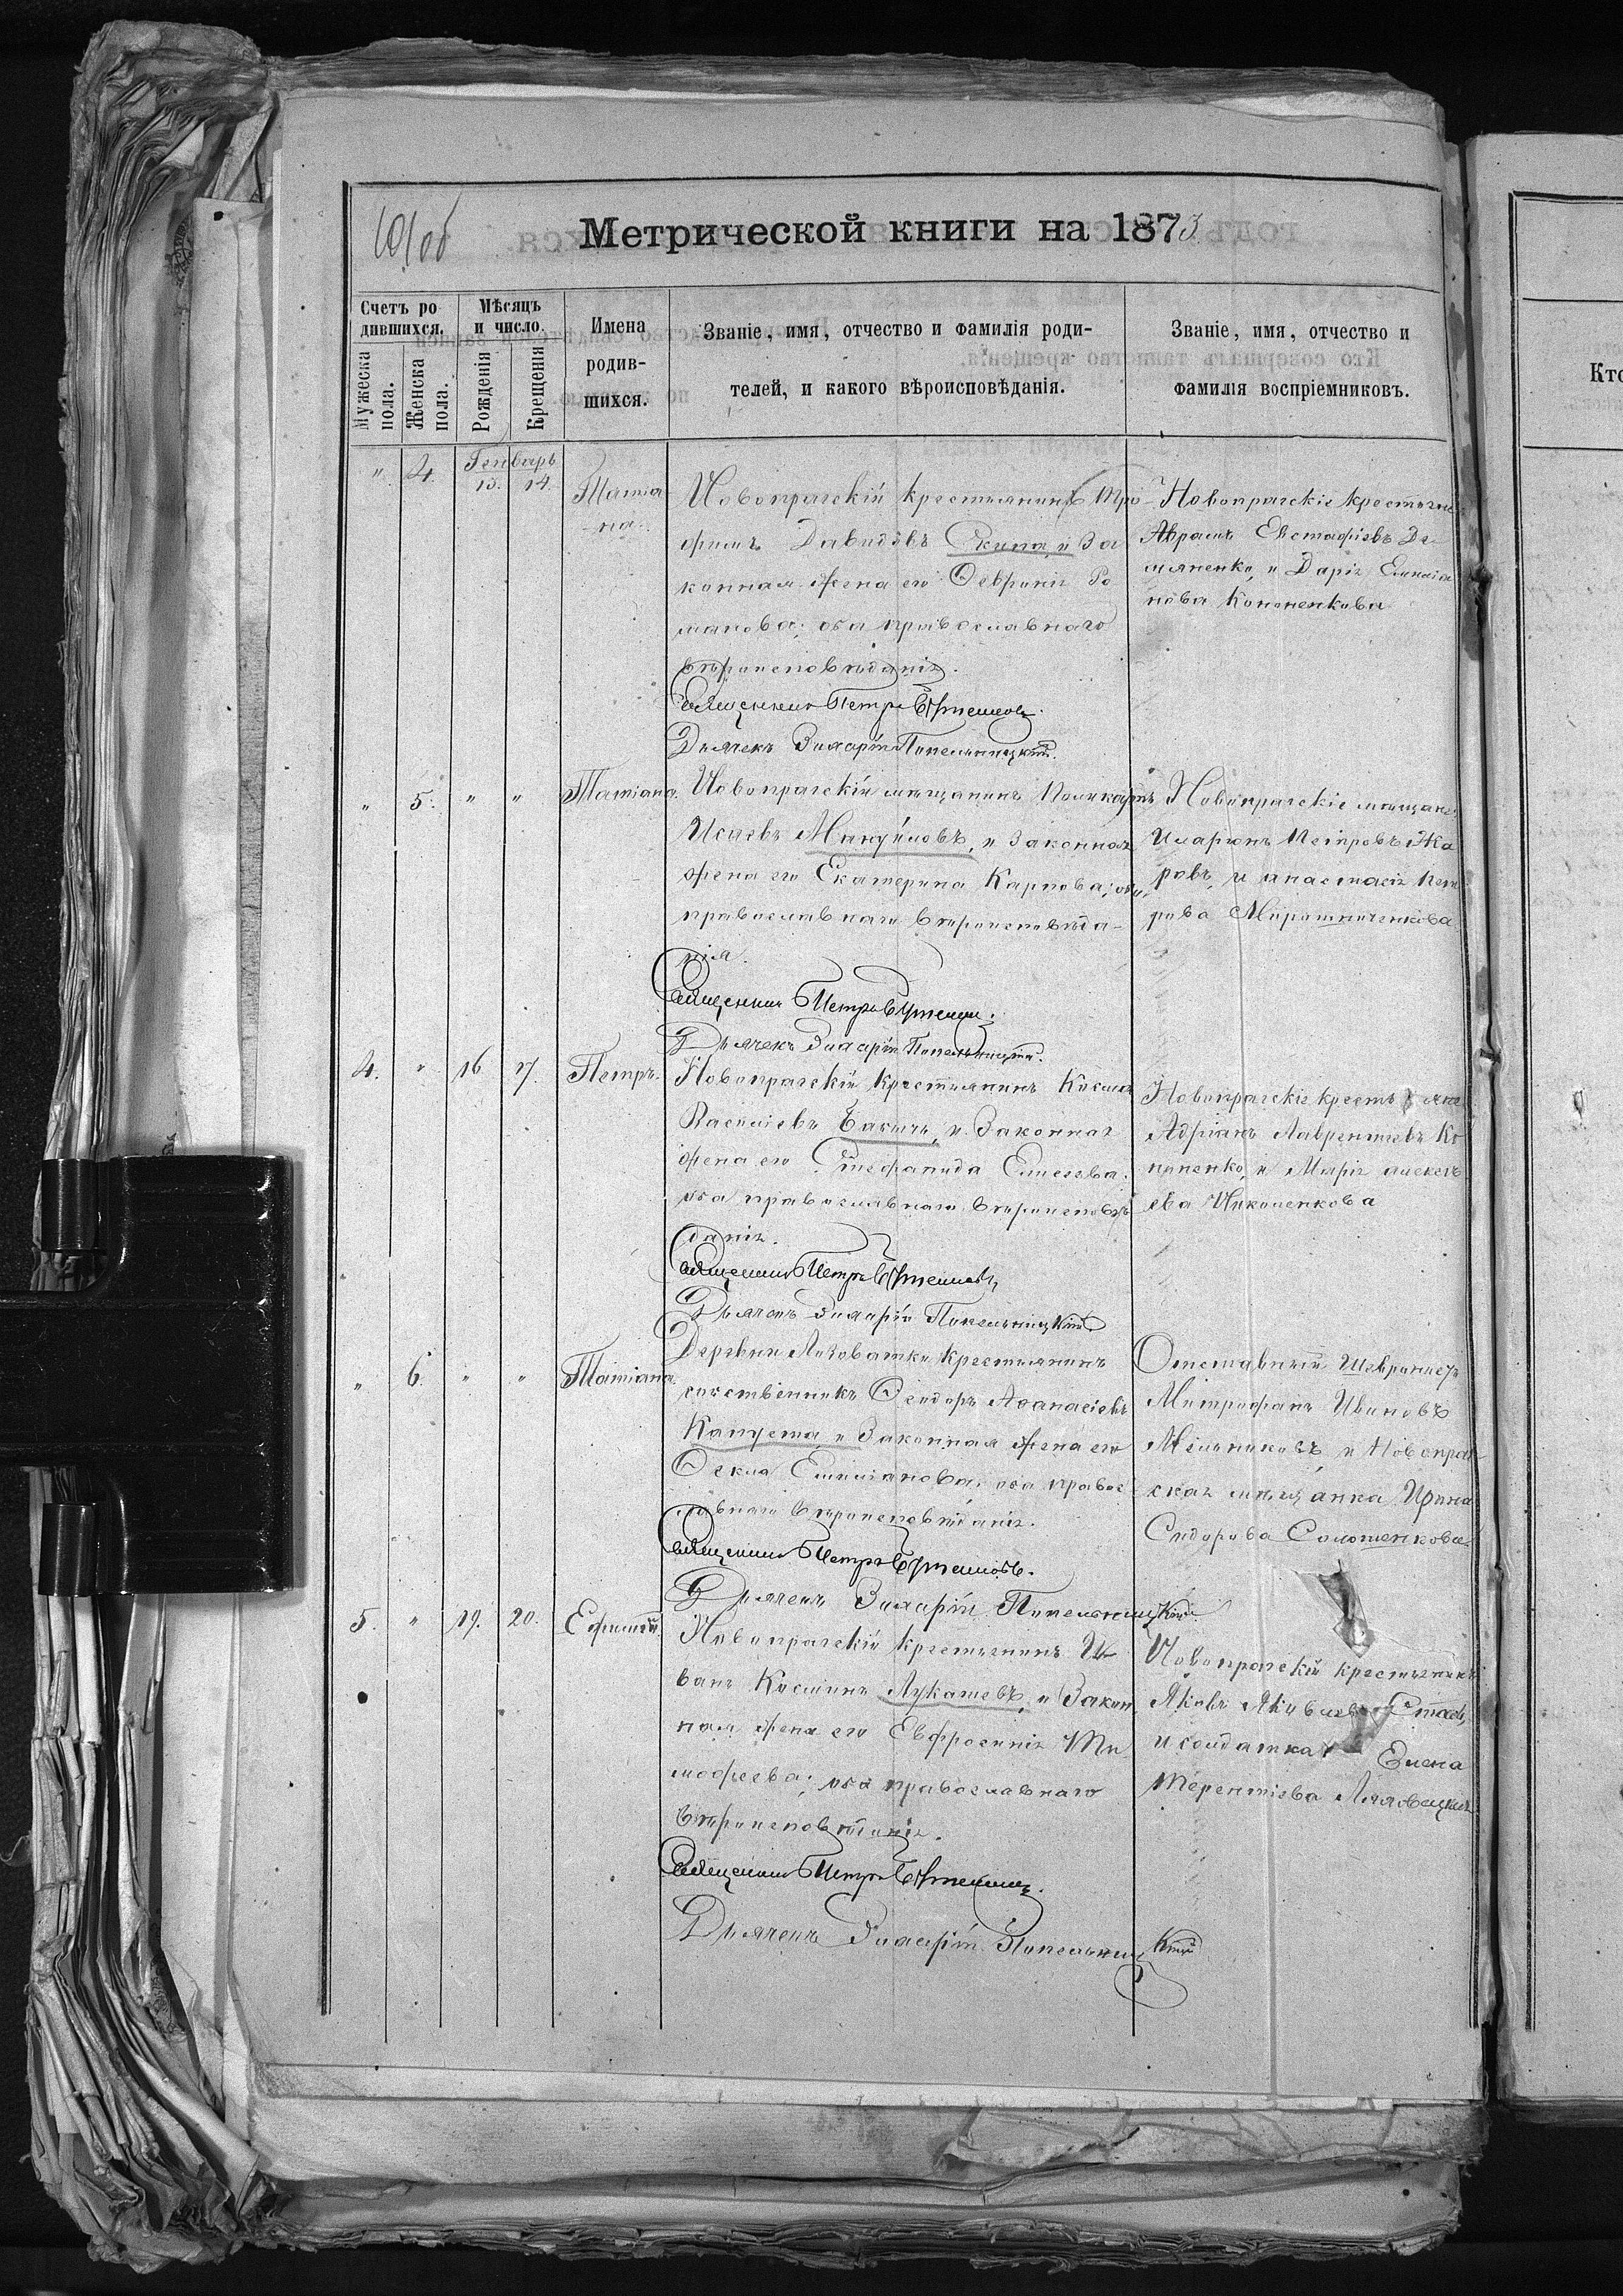 101об
Метрической книги на 1873
Счетъ ро
дившихся.
Мужеска
пола.
Женска
пола.
Мѣсяцъ
и число.
Рожденія
Крещенія
Имена
родив-
шихся.
Званіе, имя, отчество и фамилія роди-
телей, и какого вѣроисповѣданія.
Званіе, имя, отчество и
фамилія воспріемниковъ.
" 4. Генварь
13. 14.
Татiа
на.
Новопрагскій крестьянинъ Тро
фимъ Давидовъ и За
конная жена его Февронія Ро
манова; оба православнаго
вѣроисповѣданія.
Священникъ Петръ
Дьячекъ Попельницкій.
Новопрагскіе крестьяне
Абрамъ Евстафіевъ Де
мяненко, и Дарія Емилiа
нова Кононенкова
" 5. " " Татіана.
Новопрагскій мѣщанинъ Поликарпъ
Исаевъ Мануйловъ, и законная
жена его Екатерина Карпова; оба
православнаго вѣроисповѣда-
нія.
Священникъ Петръ
Дьячекъ Попельницкій.
Новопрагскіе мѣщане
Иларіонъ Петровъ Жа
ровъ, и Анастасія Пет
рова Мирошниченкова
4. " 16 17. Петръ.
Новопрагскій крестьянинъ Косма
Василіевъ и Законная
жена его Стефанида Елисеева.
оба православнаго вѣроисповѣ
данія.
Священникъ Петръ
Дьячекъ Попельницкій.
Новопрагскіе крестьяне
Адріанъ Лаврентіевъ Ко
ненко, и Марія Алексѣ
ева Николенкова
" 6. " " Татіана.
Деревни Лозоватки крестьянинъ
собственникъ Ѳеодоръ Аѳанасіевъ
Капуста, и Законная жена его
Ѳекла Емиліанова. оба правос
лавнаго вѣроисповѣданія.
Священникъ Петръ
Дьячекъ Попельницкій.
Отставный
Митрофанъ Ивановъ
Мельниковъ, и Новопраг
ская мѣщанка Ирина
Сидорова Солошенкова.
5. " 19. 20. Ефимій.
Новопрагскій крестьянинъ И
ванъ Косминъ Лукашевъ, и Закон
ная жена его Евфросинія Ти
мофеева; оба православнаго
вѣроисповѣданія.
Священникъ Петръ
Дьячекъ Попельницкій
Новопрагскій крестьянинъ
Яковъ Яковлевъ
и солдатка Елена
Терентіева
Кто